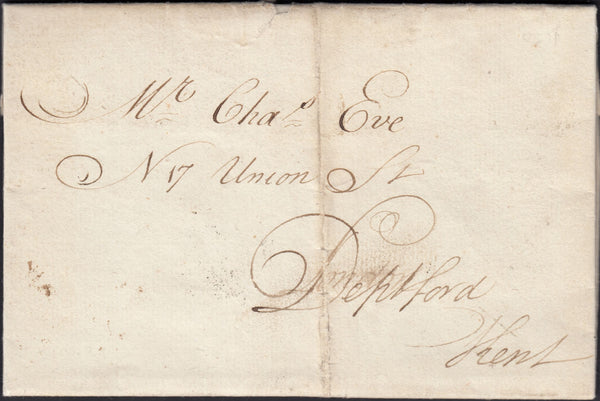 Mr Chas Eve
N 17 Union St
Deptford
Kent